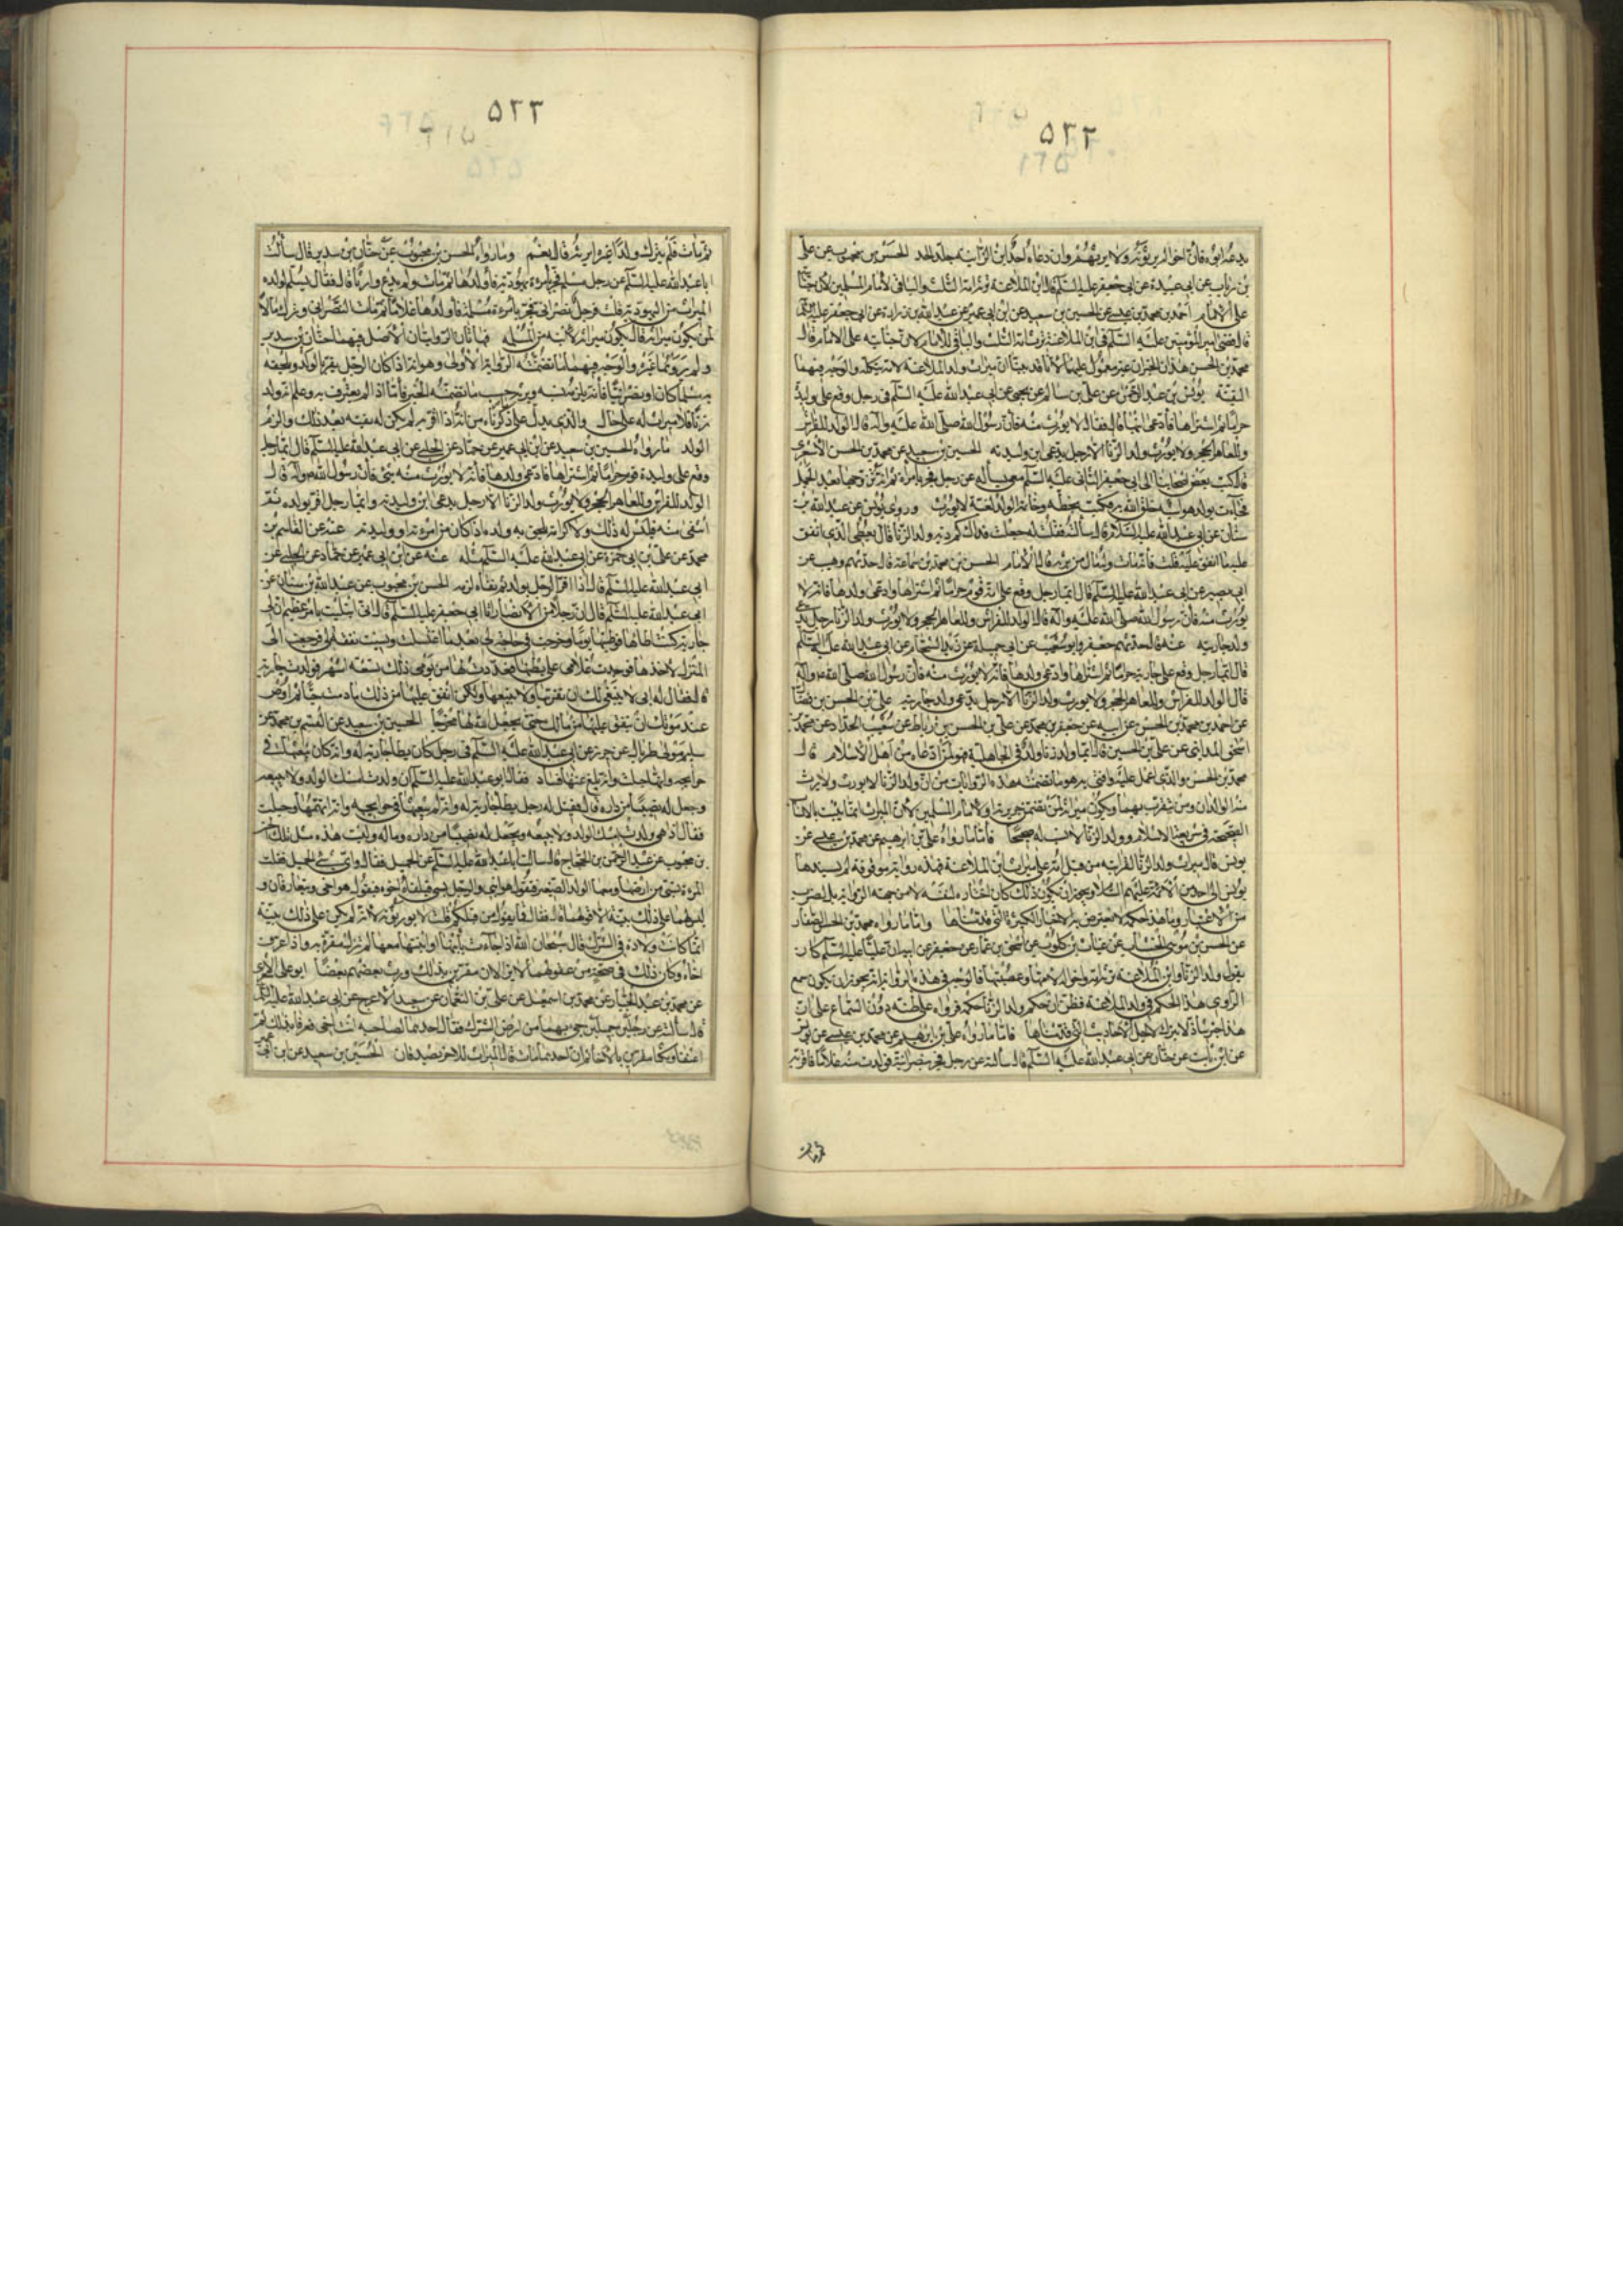 ٥٢٢
يدعه ابوه فان اخواله يرثونه ولا يرثهم وان دعاه احد ابن الزانية جلد الحد الحسن بن محبوب عن علي
بن رئاب عن ابي عبيدة عن ابي جعفر عليه السلم قال ابن الملاعنة ترثه امه الثلث والباقي لامام المسلمين لان جنايته
على الامام احمد بن محمد بن عيسى عن الحسين بن سعيد عن ابن ابي عمير عن عبد الله عن زرارة عن ابي جعفر عليه السلم
قال قضى امير المؤمنين عليه السلم في ابن الملاعنة ترثه امه الثلث والباقي للامام لان جنايته على الامام قال
محمد بن الحسن هذان الخبران غير معمول عليهما لانا قد بينا ان ميراث ولد الملاعنة لامه كله والوجه فيهما
التقية يونس بن عبد الرحمن عن علي بن سالم عن يحيى عن ابي عبد الله عليه السلم في رجل وقع على وليدة
حراما ثم اشتراها فادعى ابنها قال فقال لا يورث منه فان رسول الله صلى الله عليه وآله قال الولد للفراش
وللعاهر الحجر ولا يورث ولد الزنا الا رجل يدعي ابن وليدته الحسين بن سعيد عن محمد بن الحسن الاشعري
قال كتب بعض اصحابنا الى ابي جعفر الثاني عليه السلم معي يسأله عن رجل فجر بامرأة ثم انه تزوجها بعد الحمل
فجاءت بولد هو اشبه خلق الله به فكتب بخطه وخاتمه الولد لغية لا يورث وروى يونس عن عبد الله بن
سنان عن ابي عبد الله عليه السلام قال سألته فقلت له جعلت فداك كم دية ولد الزنا قال يعطى الذي انفق
عليه ما انفق عليه قلت فانه مات وله مال من يرثه قال الامام الحسن بن محمد بن سماعة قال حدثهم وهيب عن
ابي بصير عن ابي عبد الله عليه السلم قال ايما رجل وقع على امة قوم حراما ثم اشتراها وادعى ولدها فانه لا
يورث منه فان رسول الله صلى الله عليه وآله قال الولد للفراش وللعاهر الحجر ولا يورث ولد الزنا الا رجل يدعي
ولد جاريته عنه قال حدثهم جعفر وابو شعيب عن ابي جميلة عن زيد الشحام عن ابي عبد الله عليه السلم
قال ايما رجل وقع على جارية حراما ثم اشتراها وادعى ولدها فانه لا يورث منه فان رسول الله صلى الله عليه وآله
قال الولد للفراش وللعاهر الحجر ولا يورث ولد الزنا الا رجل يدعي ولد جاريته علي بن الحسن بن فضال
عن احمد بن محمد بن الحسن عن ابيه عن جعفر بن محمد عن علي بن الحسن بن رباط عن شعيب الحداد عن محمد بن
اسحق المدائني عن علي بن الحسين قال ايما ولد زنا ولد في الجاهلية فهو لمن ادعاه من اهل الاسلام قال
محمد بن الحسن والذي اعمل عليه وافتي به هو ما تضمنته هذه الروايات من ان ولد الزنا لا يورث ولا يرث
منه الوالدان ومن يتقرب بهما ويكون ميراثه لمن يضمن جريرته او لامام المسلمين لان الميراث انما يثبت بالانساب
الصحيحة في شريعة الاسلام وولد الزنا لا نسب له صحيحا فاما ما رواه علي بن ابرهيم عن محمد بن عيسى عن
يونس قال ميراث ولد الزنا لقراباته من قبل امه على ميراث ابن الملاعنة فهذه رواية موقوفة لم يسندها
يونس الى احد من الائمة عليهم السلام ويجوز ان يكون ذلك كان اختاره لنفسه لا من جهة الرواية بل لضرب
من الاعتبار وما هذا حكمه لا يعترض به الاخبار الكثيرة التي قدمناها واما ما رواه محمد بن الحسن الصفار
عن الحسن بن موسى الخشاب عن غياث بن كلوب عن اسحق بن عمار عن جعفر عن ابيه ان عليا عليه السلم كان
يقول ولد الزنا وابن الملاعنة ترثه امه واخواله لامه وعصبتها فالوجه في هذه الرواية انه يجوز ان يكون سمع
الراوي هذا الحكم في ولد الملاعنة فظن ان حكم ولد الزنا حكمه فرواه على ظنه دون السماع على ان
هذا خبر شاذ لا يترك لاجله الاحاديث التي قدمناها فاما ما رواه علي بن ابرهيم عن محمد بن عيسى عن يونس
عن ابن ثابت عن حنان عن ابي عبد الله عليه السلم قال سألته عن رجل فجر بنصرانية فولدت منه غلاما فاقر به
ثم مات
٥٢٣
ثم مات فلم يترك ولدا غيره ايرثه قال نعم وما رواه الحسن بن محبوب عن حنان بن سدير قال سألت
ابا عبد الله عليه السلم عن رجل مسلم فجر بامرءة يهودية فاولدها ثم مات ولم يدع وارثا قال فقال يسلم لولده
الميراث من اليهودية قلت فرجل نصراني فجر بامرءة مسلمة فاولدها غلاما ثم مات النصراني وترك مالا
لمن يكون ميراثه قال يكون ميراثه لابنه من المسلمة فهاتان الروايتان الاصل فيهما حنان بن سدير
ولم يروهما غيره والوجه فيهما ما تضمنته الرواية الاولى وهو انه اذا كان الرجل يقر بالولد ويلحقه
به مسلما كان او نصرانيا فانه يلزمه نسبه ويرثه حسب ما تضمنه الخبر فاما اذا لم يعترف به وعلم انه ولد
زنا فلا ميراث له على حال والذي يدل على ما ذكرناه من انه اذا اقر به لم يكن له نفيه بعد ذلك والزم
الولد ما رواه الحسين بن سعيد عن ابن ابي عمير عن حماد عن الحلبي عن ابي عبد الله عليه السلم قال ايما رجل
وقع على وليدة قوم حراما ثم اشتراها فادعى ولدها فانه لا يورث منه شئ فان رسول الله صلى الله عليه وآله قال
الولد للفراش وللعاهر الحجر ولا يورث ولد الزنا الا رجل يدعي ابن وليدته وايما رجل اقر بولده ثم
انتفى منه فليس له ذلك ولا كرامة يلحق به ولده اذا كان من امرءته او وليدته عنه عن القاسم بن
محمد عن علي بن ابي حمزة عن ابي عبد الله عليه السلم مثله عنه عن ابن ابي عمير عن حماد عن الحلبي عن
ابي عبد الله عليه السلم قال اذا اقر الرجل بولد ثم نفاه لزمه الحسن بن محبوب عن عبد الله بن سنان عن
ابي عبد الله عليه السلم قال ان رجلا من الانصار اتى ابي جعفر عليه السلم قال اني ابتليت بامر عظيم ان لي
جارية كنت اطأها فوطئتها يوما وخرجت في حاجة لي بعد ما اغتسلت ونسيت نفقة لي فرجعت الى
المنزل لاخذها فوجدت غلامي على بطنها فعددت لها من يومي ذلك تسعة اشهر فولدت جارية
قال فقال له ابي لا ينبغي لك ان تقربها ولا تبيعها ولكن انفق عليها من ذلك ما دمت حيا ثم اوص
عند موتك ان ينفق عليها من مالك حتى يجعل الله لها مخرجا الحسين بن سعيد عن القسم بن محمد عن
سليم مولى طربال عن حريز عن ابي عبد الله عليه السلم في رجل كان يطأ جارية له وانه كان يبعثها في
حوائجه وانها حبلت وانه بلغه عنها فساد فقال ابو عبد الله عليه السلم اذا ولدت امسك الولد ولا يبيعه
وجعل له نصيبا من داره قال فقيل له رجل يطأ جارية له وانه لم يبعثها في حوائجه وانه اتهمها وحبلت
فقال اذا هي ولدت امسك الولد ولا يبيعه ويجعل له نصيبا من داره وماله وليست هذه مثل تلك الحسن
بن محبوب عن عبد الرحمن بن الحجاج قال سألت ابا عبد الله عليه السلم عن الحميل فقال واي شئ الحميل فقلت
المرءة تسبى من ارضها ومعها الولد الصغير فتقول هو ابني والرجل يسبى فيلقاه اخوه فيقول هو اخي ويتعارفان و
ليس لهما على ذلك بينة الا قولهما قال فقال فما يقول من قبلكم قلت لا يورثونه لانه لم يكن على ذلك بينة
انما كانت ولادة في الشرك قال سبحان الله اذا جاءت بابنها او ابنتها معها لم تزل مقرة به واذا عرف
اخاه وكان ذلك في صحة من عقولهما لا يزالان مقرين بذلك ورث بعضهم بعضا ابو علي الاشعري
عن محمد بن عبد الجبار عن محمد بن اسمعيل عن علي بن النعمان عن سعيد الاعرج عن ابي عبد الله عليه السلم
قال سألته عن رجلين حميلين جئ بهما من ارض الشرك فقال احدهما لصاحبه انت اخي فعرفا بذلك ثم
اعتقا ومكثا مقرين بالاخاء ثم ان احدهما مات قال الميراث للاخ يصدقان الحسين بن سعيد عن ابن ابي عمير